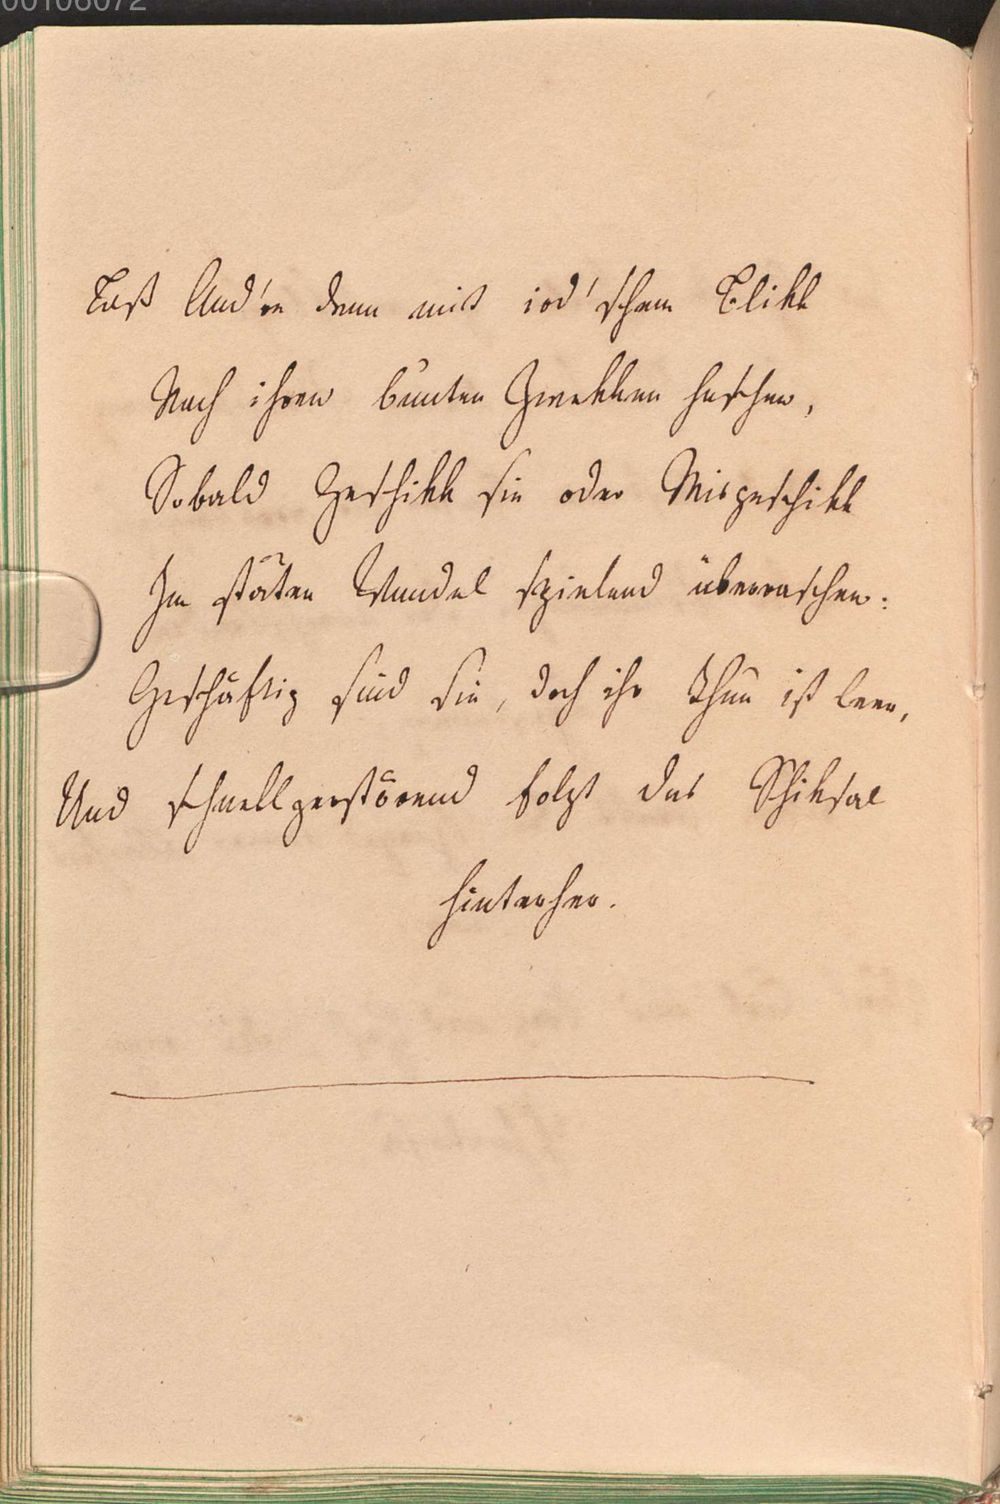 00106072
Laß And're denn mit ird'schem Blikk
Nach ihren bunten Zwekken haschen,
Sobald Geschikk sie oder Misgeschikk
Im stäten Wandel spielend überraschen:
Geschäftig sind sie, doch ihr Thun ist leer,
Und schnellzerstörend folgt das Schiksal
hinterher.